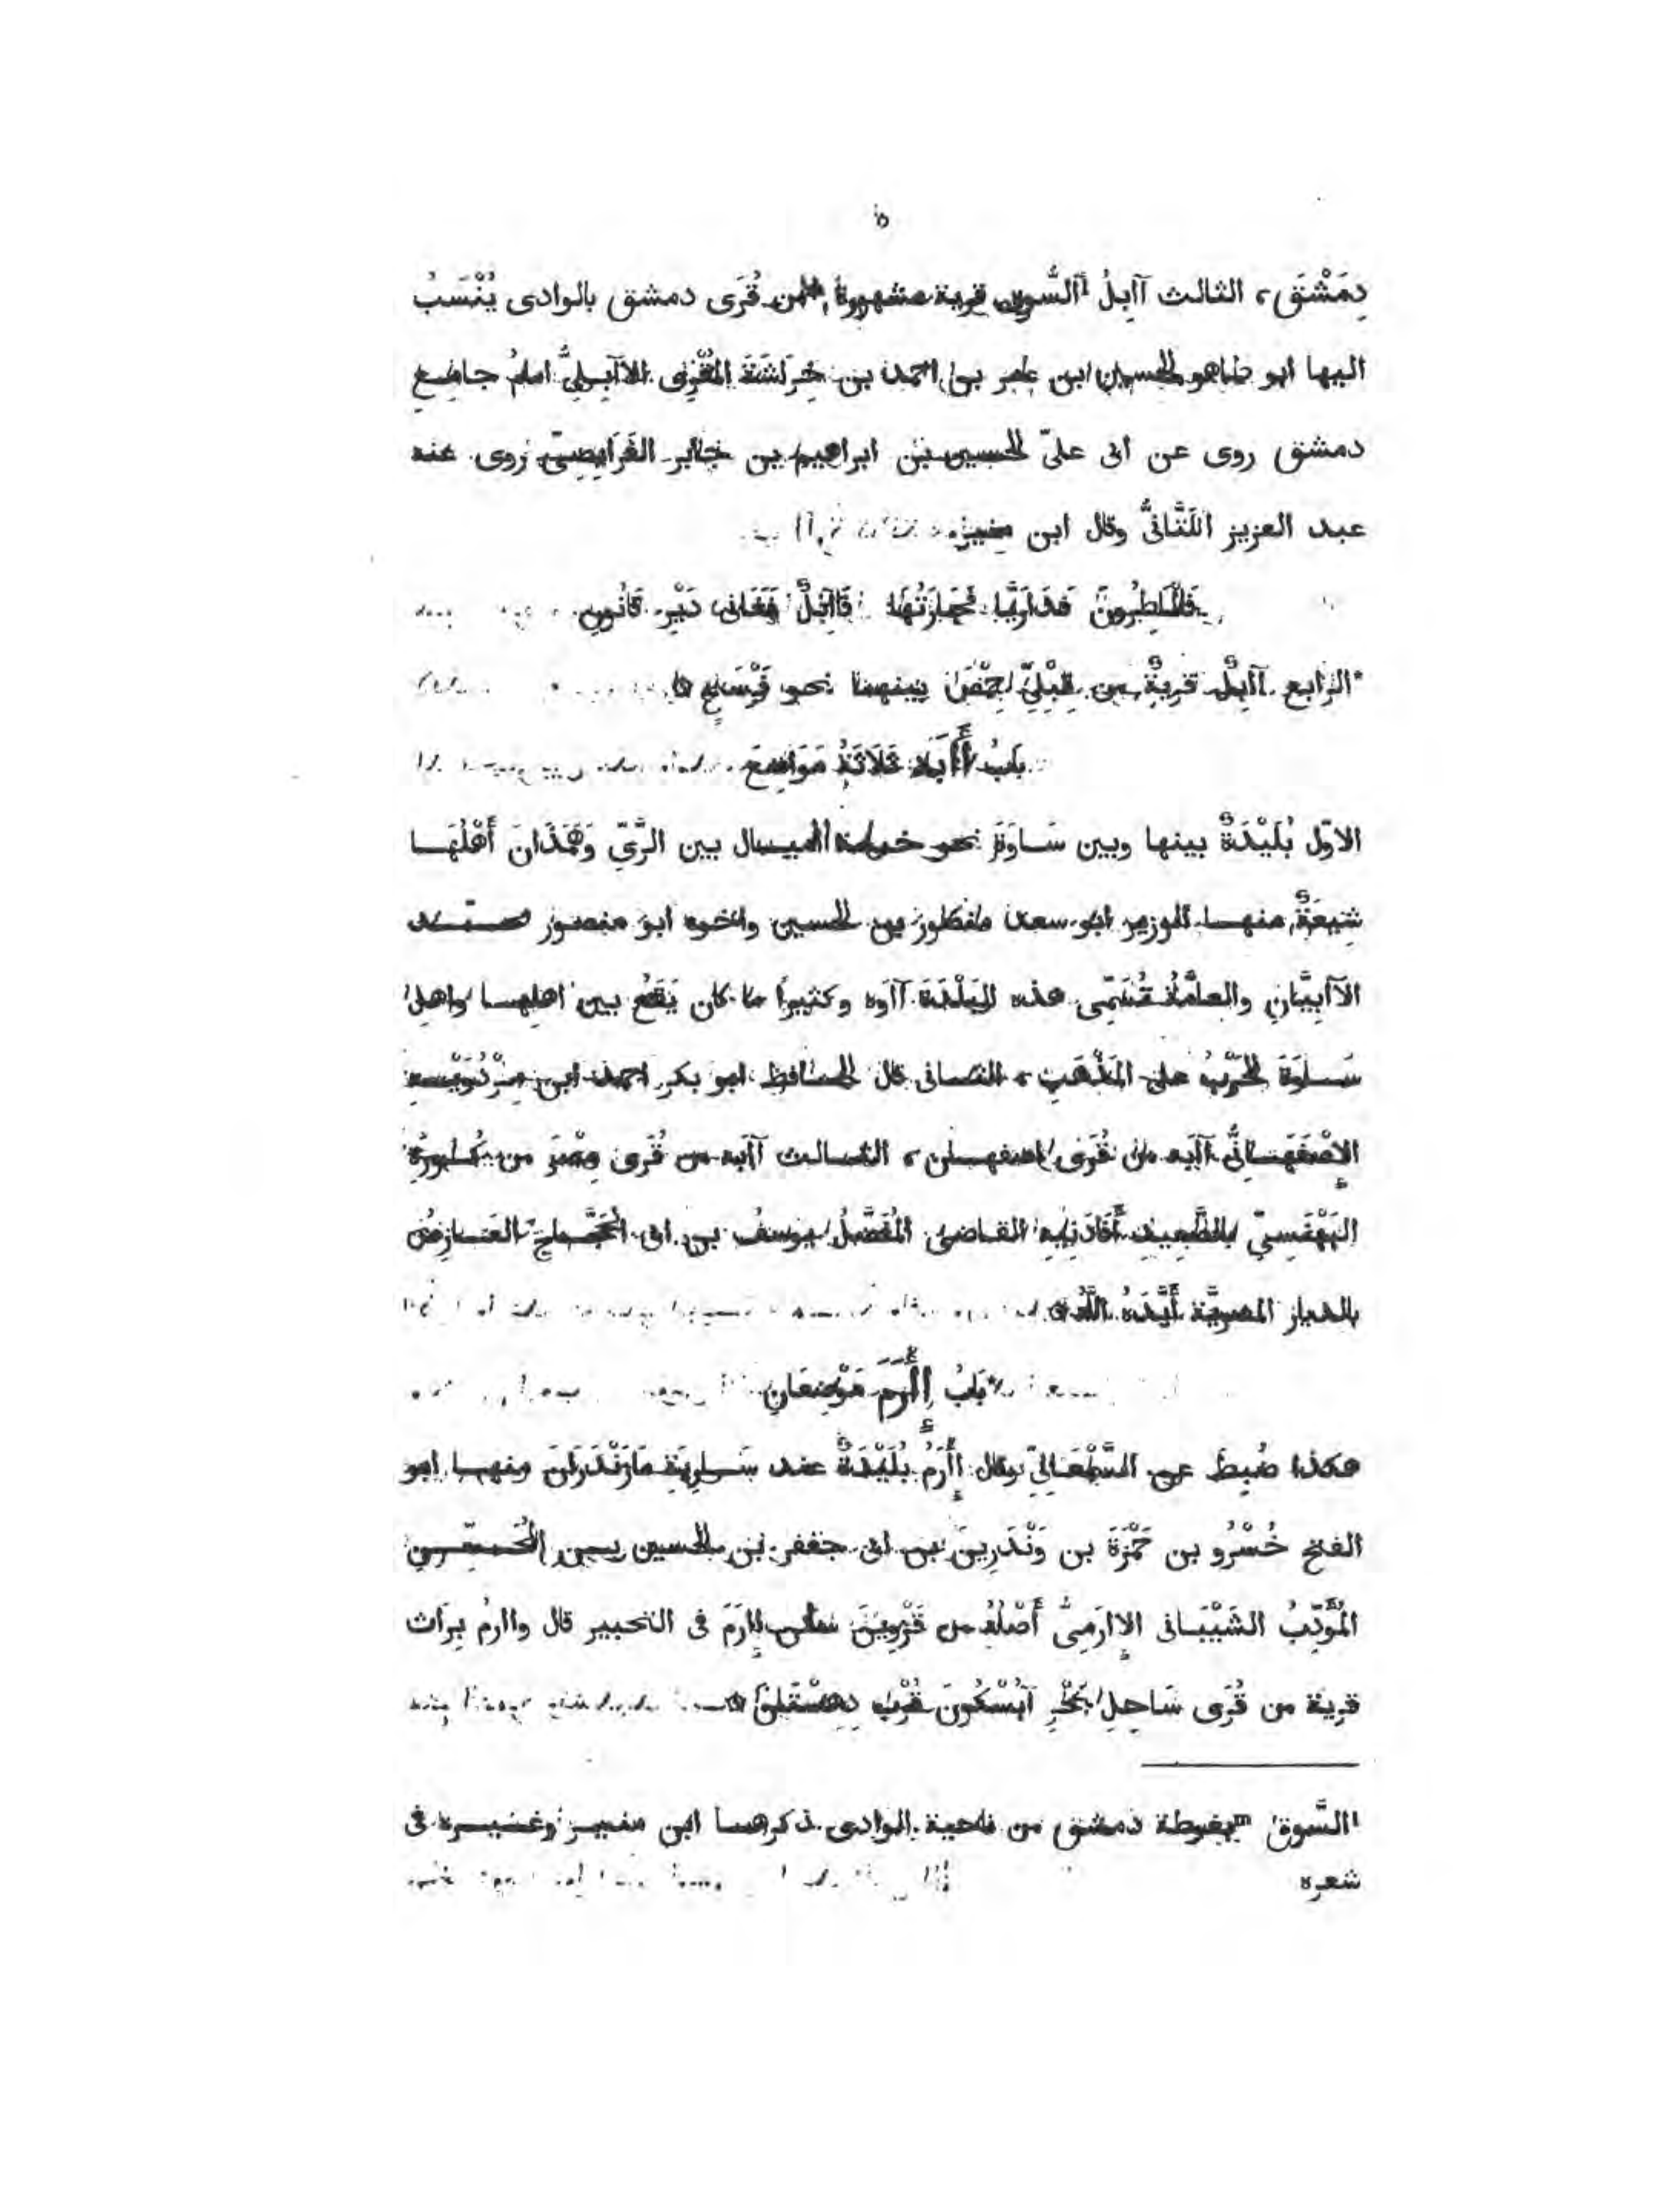 ٥
دِمَشْقَ، الثالث آابِلُ السُّوق قرية مشهورة من قُرَى دمشق بالوادى يُنْسَبُ
اليها ابو طاهر الحسين ابن عامر بن احمد بن خِرَاشَةَ المُقْرِى الآابِلِىُّ امامُ جامِعِ
دمشق روى عن ابى علىّ الحسين بن ابراهيم بن جابر الفَرَايضِىّ روى عنه
عبد العزيز الكَتَّانىُّ وقال ابن منير
فَالْمَاطِرُونَ فَدَارَيَّا فَجَارَتُهَا فَآابِلٌ فَمَغَانِى دَيْرِ قَانُونِ
*الرابع آابِلُ قريةٌ من قِبْلِىِّ حِمْصَ بينهما نحو فَرْسَخٍ ۞
بَابُ ثَلَاثَةُ مَوَاضِعَ
الاوّل بُلَيْدَةٌ بينها وبين سَاوَةَ نحو خمسة اميال بين الرَّىِّ وَهَمَذَانَ أَهْلُهَا
شِيعَةٌ منها الوزير ابو سعد منصور بن الحسين واخوه ابو منصور محمد
الآابِيَّانِ والعامَّةُ تُسَمِّى هذه البَلْدَةَ آاوَه وكثيرًا ما كان يَقَعُ بين اهلها واهل
سَاوَةَ الحَرْبُ على المَذْهَبِ، الثانى قال الحافظ ابو بكر احمد ابن مِرْدُوَيْه
الإِصْفَهَانِىُّ آابَه من قُرَى اصفهان، الثالث آابَه من قُرَى مِصْرَ من كُورَةِ
البَهْنَسَى بالصَّعِيدِ أَفَادَنِيهِ القاضى المُفَضَّلُ يوسف بن ابى الحَجَّاج العَارِضُ
بالديار المصريَّة أَيَّدَهُ اللَّهُ ۞
*بَابُ إِأَرَمَ مَوْضِعَانِ
هكذا ضُبِطَ عن السَّمْعَانِىِّ وقال إِأَرَمُ بُلَيْدَةٌ عند سَارِيَةِ مَازَنْدَرَانَ منها ابو
الفتح خُسْرُو بن حَمْزَةَ بن وَنْدَرِينَ بن ابى جعفر بن الحسين بن
المُؤَدِّبُ الشَيْبَانى الإِارَمِىُّ أَصْلُهُ من قَزْوِينَ سكن إِارَمَ فى التحبير قال واارمُ بِرَاث
قرية من قُرَى سَاحِلِ بَحْرِ آبُسْكُونَ قُرْبَ دِهِسْتَانَ ۞
¹السَّوق بغوطة دمشق من ناحية الوادى ذكرها ابن منير وغيره فى
شعره